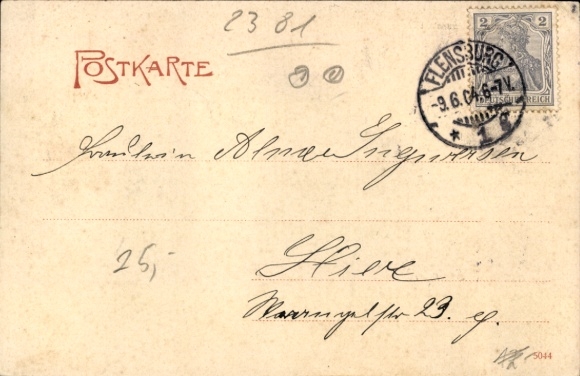 2381
POSTKARTE
2 2
DEUTSCHES REICH
FLENSBURG
-9.6.04.6-7V.
* 1 g
Fräulein Alma Ingwersen
Hier
Wrangelstr 23. II.
25,-
5044